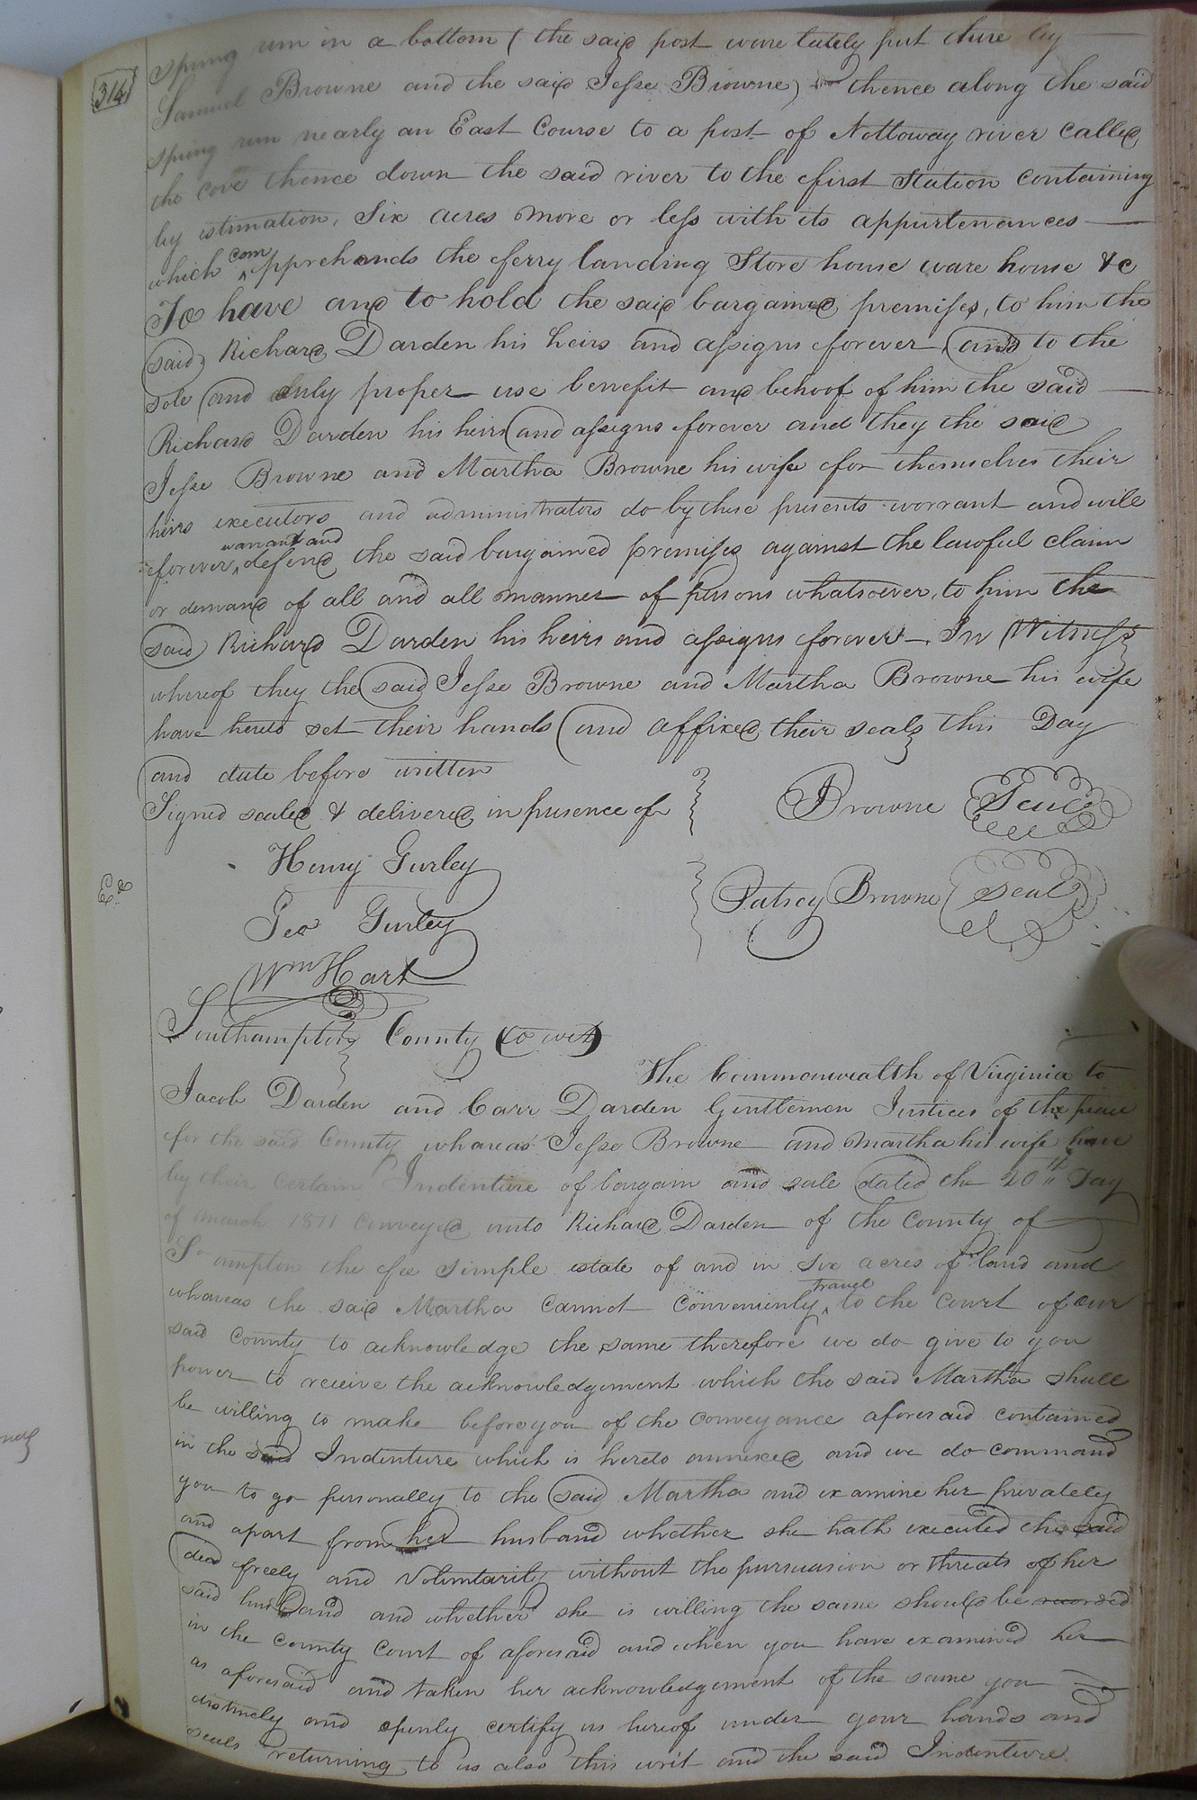 314
spring run in a bottom (the said post ware lately put there by
Samuel Browne and the said Jesse Browne) thence along the said
spring run nearly an East Course to a post of Nottoway river called
the cove thence down the said river to the first Station containing
by estimation, Six acres more or less with its appurtenances
which ^com apprehends the ferry landing Store house ware house &c
To have and to hold the said bargained premises, to him the
said Richard Darden his heirs and assigns forever and to the
sole and only proper use benefit and behoof of him the said
Richard Darden his heirs and assigns forever and they the said
Jesse Browne and Martha Browne his wife for themselves their
heirs executors and administrators do by these presents warrant and will
forever ^warrant and defend the said bargained premises against the lawful claim
or demand of all and all manner of persons whatsoever, to him the
said Richard Darden his heirs and assigns forever. In Witness
whereof they the said Jesse Browne and Martha Browne his wife
have hereto set their hands and affixed their seals this Day
and date before written
Signed sealed & delivered in presence of
Browne Seal
Henry Gurley
Ex
Patsey Browne Seal
Geo Gurley
Wm Hart
Southampton County to wit
The Commonwealth of Virginia to
Jacob Darden and Carr Darden Gentlemen Justices of the peace
for the said County whareas Jesse Browne and Martha his wife have
by their Certain Indenture of bargain and sale dated the 20th Day
of March 1811 Conveyed unto Richard Darden of the County of
So ampton the fee simple estate of and in Six acres of land and
whareas the said Martha cannot conveniently ^travel to the Court of our
said County to acknowledge the same therefore we do give to you
power to receive the acknowledgement which the said Martha shall
be willing to make before you of the conveyance aforesaid contained
in the said Indenture which is hereto annexed and we do command
you to go personally to the said Martha and examine her privately
and apart from her husband whether she hath executed the said
deed freely and Voluntarily without the pursuasion or threats of her
said husband and whether she is willing the same should be recorded
in the County Court of aforesaid and when you have examined her
as aforesaid and taken her acknowledgement of the same you
distincly and openly certify us hereof under your hands and
seals returning to us also this writ and the said Indenture